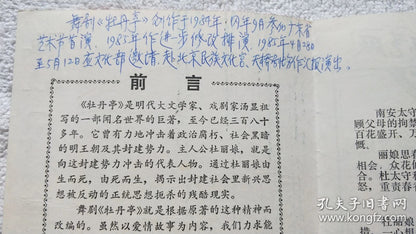 舞剧《牡丹亭》创作于1984年,同年9月参加广东省
艺术节首演。1985年作进步修改排演,1985年4月20日
至5月12日受文化部邀请赴北京民族文化宫、天桥
演出。
前 言
《牡丹亭》是明代大文学家、戏剧家汤显祖
写的一部闻名世界的巨著,至今已经三百八十
多年。它曾有力地冲击着政治腐朽、社会黑暗
的明王朝及其封建势力。主人公杜丽娘,就是
向这封建势力冲击的代表人物。通过杜丽娘由
生而死,由死而生,揭示出封建社会里新兴思
想被反动的正统思想扼杀的残酷现实。
舞剧《牡丹亭》就是根据原著的这种精神而
改编的。虽然以爱情故事为内容,我们力求能
南安太守
顾父母的拘禁
百花盛开、万
慨
丽娘思春
相会,众花
合。杜太守
怒,重责春香
杜丽娘
一心相
孔夫子旧书网
www.kongfz.com